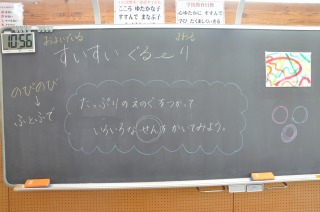 10:56
こころ ゆたかな子
すすんで まなぶ!
学校教育目標
心ゆたかに すすんで
学び たくましくきる
およいでいる
まわる
すいすい ぐるーり
のびのび
↓
ふとふで
たっぷりのえのぐをつかって
いろいろなせんをかいてみよう。